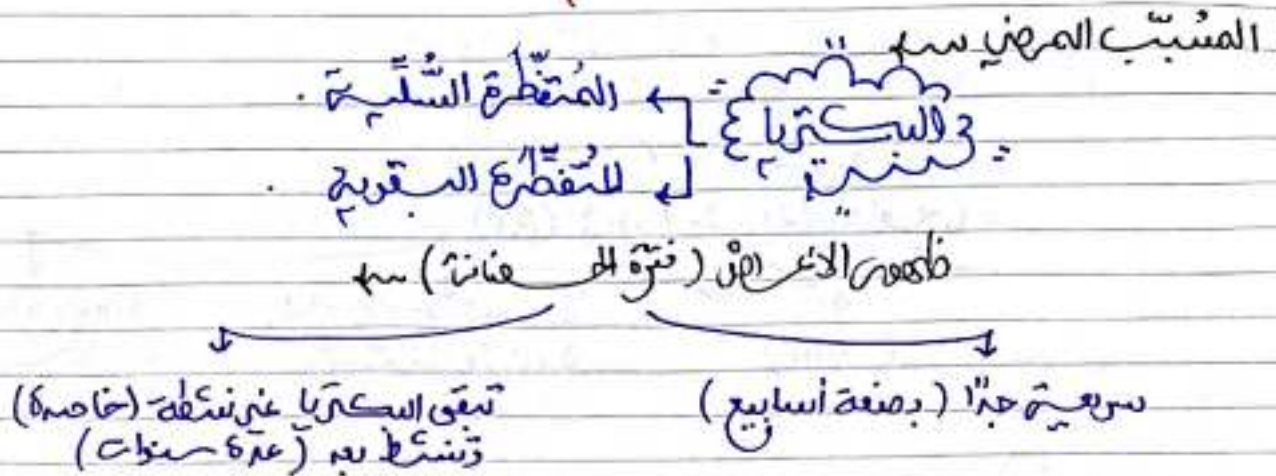 المسبّب المرضي
البكتريا
المُتفطّرة السُّلّية .
للتُفطّرة البقرية .
ظهور الاعراض (فترة الحضانة)
سريعة جدًا (بضعة أسابيع)
تبقى البكتريا غير نشطة (خامدة)
وتنشط بعد (عدة سنوات)